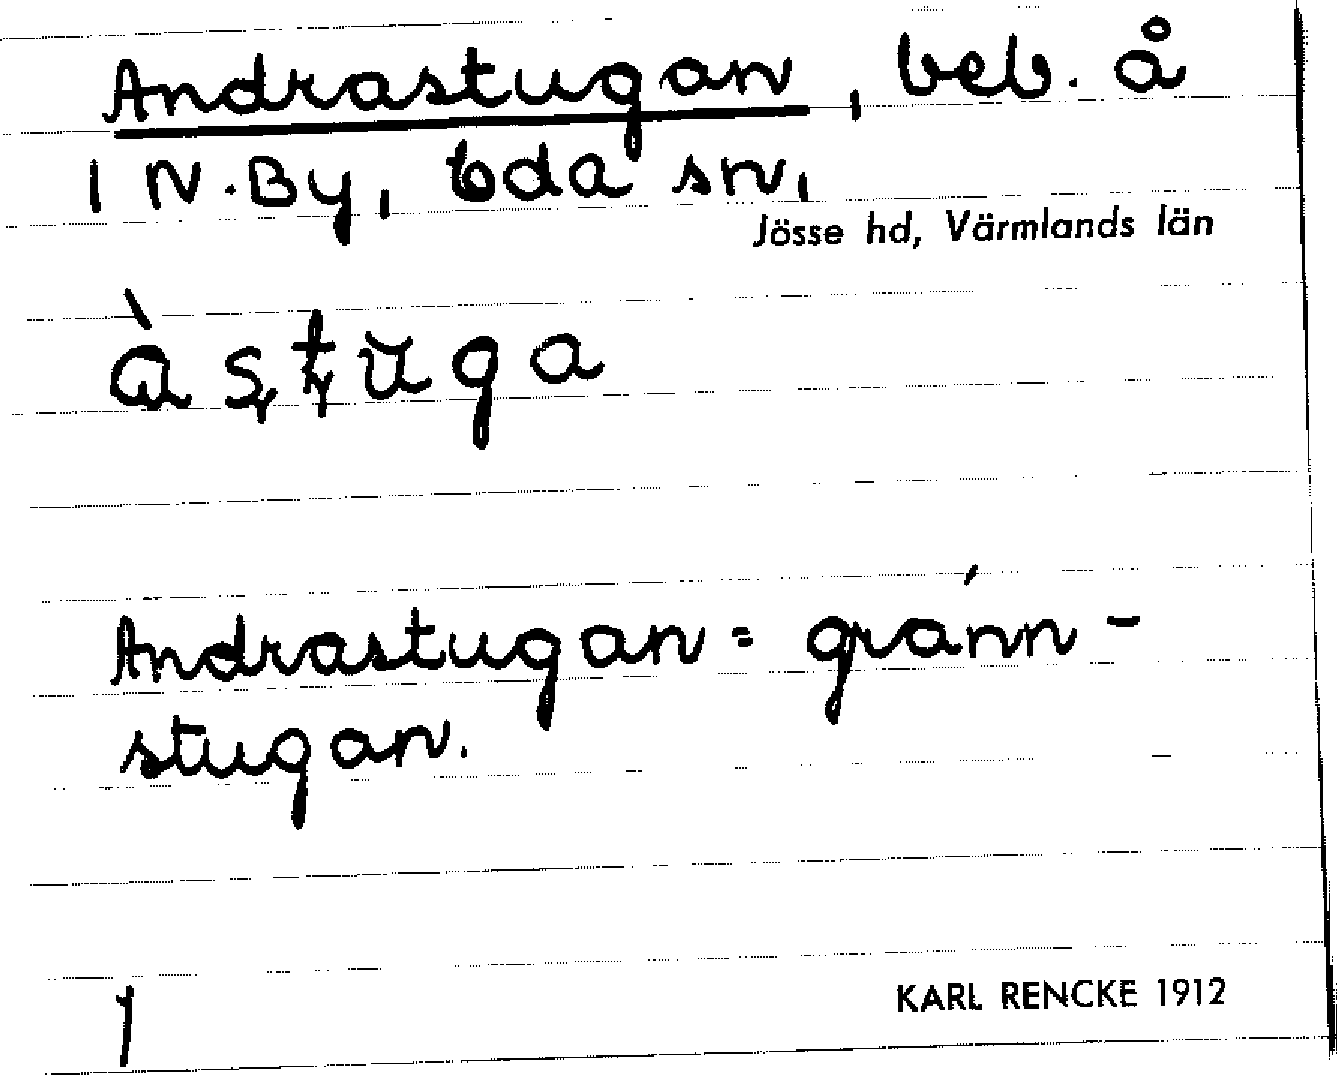 Andrastugan, beb. å
1 N. By, Eda sn,
Jösse hd, Värmlands län
àstuga
Andrastugan = gránn-
stugan.
1
KARL RENCKE 1912